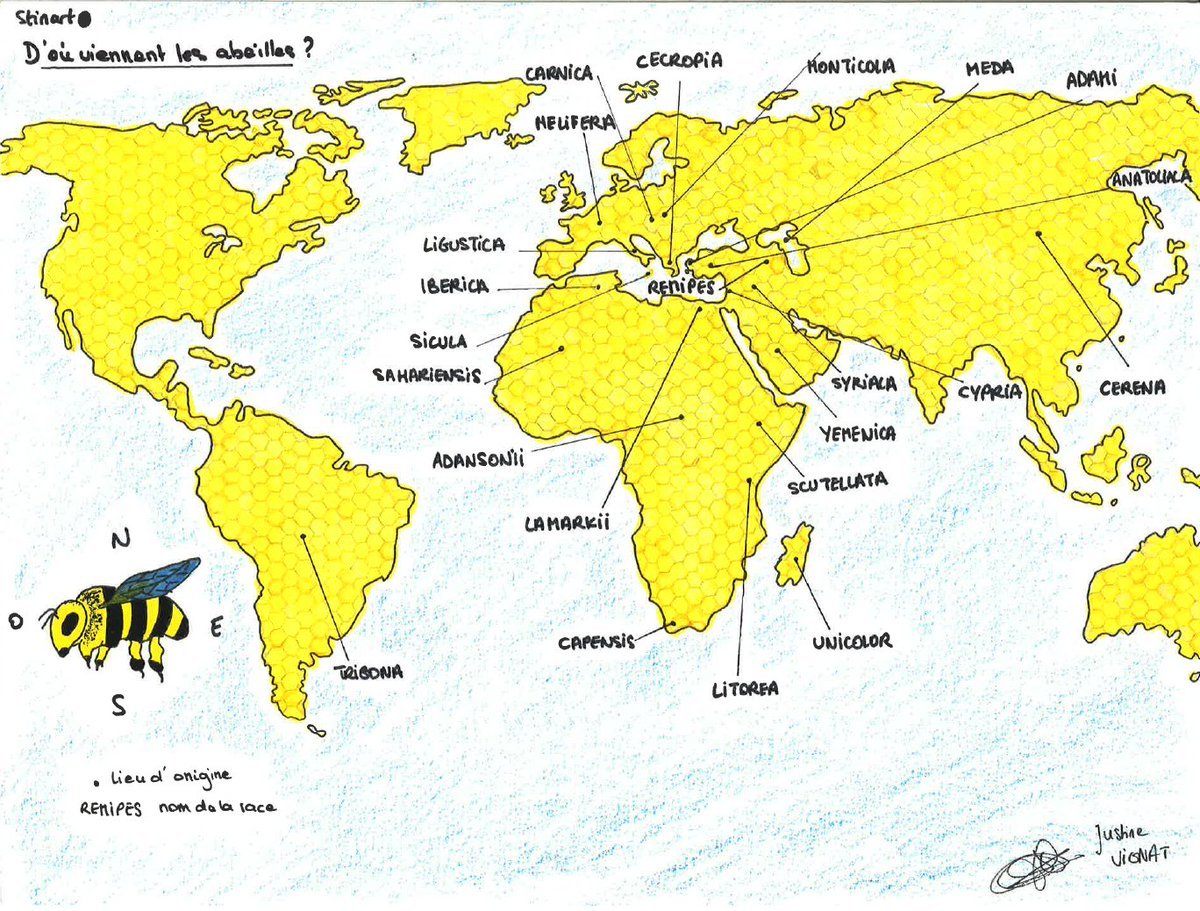 Stinart
D'où viennent les abeilles ?
CARNICA
CECROPIA
MONTICOLA
MEDA
ADAMI
MELIFERA
ANATOLIALA
LIGUSTICA
IBERICA
REMIPES
SICULA
SAHARIENSIS
SYRIALA
CYPRIA
CERENA
YEMENICA
ADANSONII
SCUTELLATA
LAMARKII
N
O
E
S
CAPENSIS
UNICOLOR
TRIGONA
LITOREA
. Lieu d'origine
REMIPES nom de la race
Justine
VIGNAT